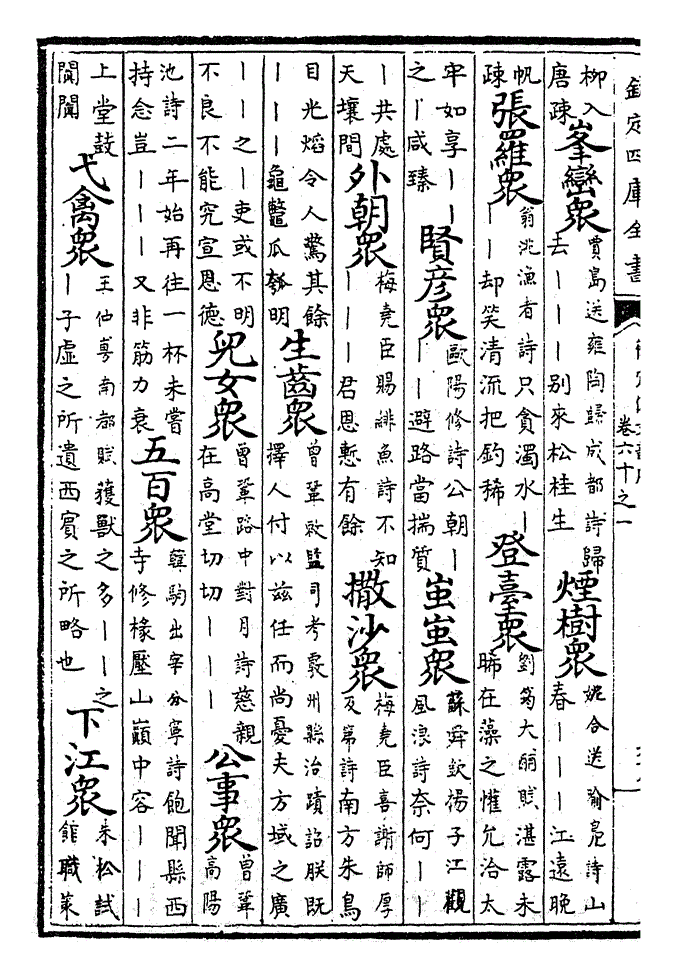 欽定四庫全書
卷六十之一
柳入唐疎 峯巒衆 賈島送雍陶歸成都詩歸去｜｜｜别來松桂生 煙樹衆 姚合送喻鳬詩山春｜｜｜江遠晚
帆疎 張羅衆 翁洮漁者詩只貪濁水｜｜｜却笑清流把釣稀 登臺衆 劉筠大酺賦湛露未晞在藻之懽允洽太
牢如享｜｜之｜咸臻 賢彦衆 歐陽修詩公朝｜｜｜避路當揣質 蚩蚩衆 蘇舜欽揚子江觀風浪詩奈何｜｜
｜共處天壤間 外朝衆 梅堯臣賜緋魚詩不知｜｜｜君恩慙有餘 撒沙衆 梅堯臣喜謝師厚及第詩南方朱鳥
目光熖令人驚其餘｜｜｜龜鼈瓜瓠明 生齒衆 曾鞏敕監司考覈州縣治蹟詔朕既擇人付以兹任而尚憂夫方域之廣
｜｜之｜吏或不明不良不能究宣恩德 兒女衆 曾鞏路中對月詩慈親在高堂切切｜｜｜ 公事衆 曾鞏高陽
池詩二年始再往一杯未嘗持念豈｜｜｜又非筋力衰 五百衆 韓駒出宰分寧詩飽聞縣西寺修椽壓山巔中容｜｜｜
上堂鼓闐闐 弋禽衆 王仲旉南都賦獲獸之多｜｜之｜子虛之所遺西賓之所略也 下江衆 朱松試館職策